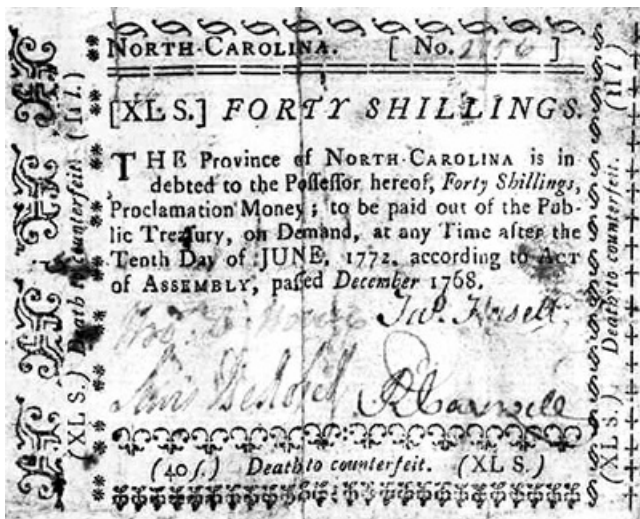 NORTH-CAROLINA. [ No. 2756 ]
[XL S.] FORTY SHILLINGS.
THE Province of NORTH-CAROLINA is in
debted to the Possessor hereof, Forty Shillings,
Proclamation Money; to be paid out of the Pub-
lic Treasury, on Demand, at any Time after the
Tenth Day of JUNE, 1772, according to ACT
of ASSEMBLY, passed December 1768.
Jas. Hasell
Lewis DeRosset
R Caswell
(40 s.) Death to counterfeit. (XL S.)
(XL S.) Death to counterfeit. (II l.)
(XL S.) Death to counterfeit. (II l.)